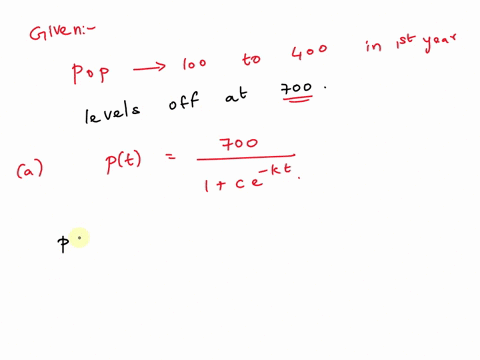 Given:-
Pop → 100 to 400 in 1st year
levels off at 700.
(a) P(t) = 700 / 1 + c e^-kt.
P